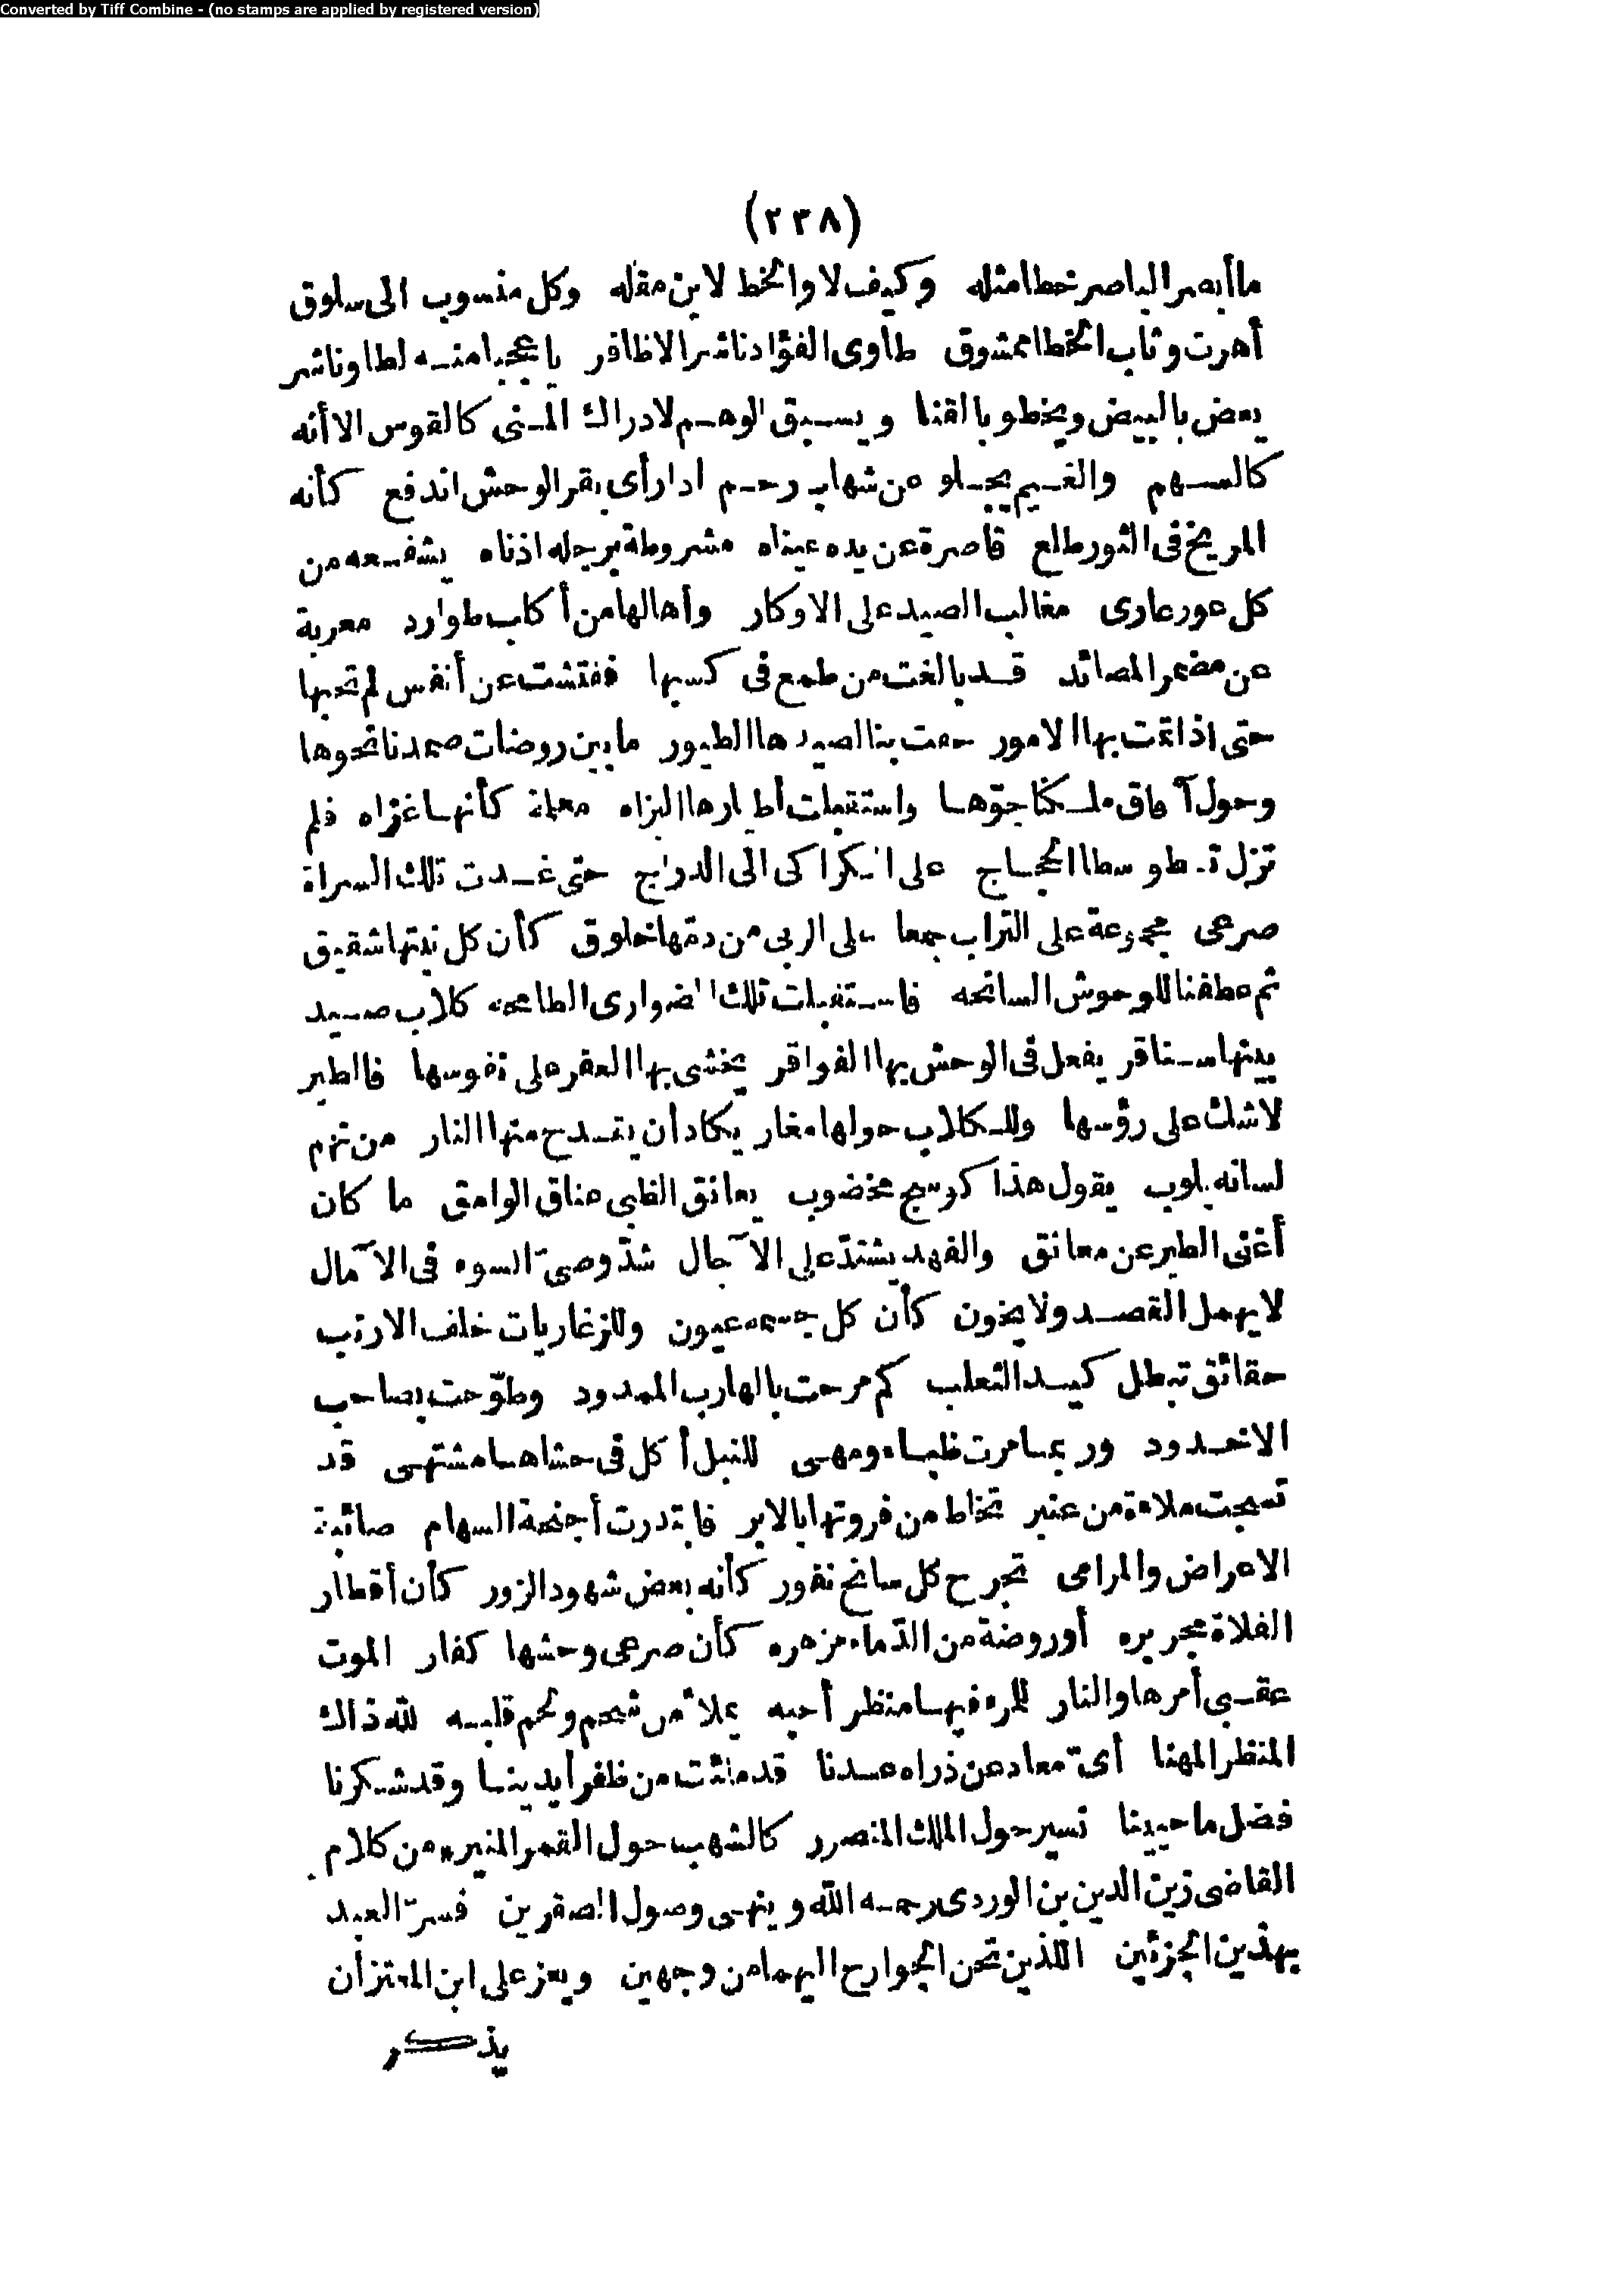 Converted by Tiff Combine - (no stamps are applied by registered version)
(٢٣٨)
ما أبصر الباصر خطا مثله وكيف لا والخط لابن مقله وكل منسوب الى سلوق
أهرت وثاب الخطا ممشوق طاوى الفؤاد ناشر الاظافر يا عجبا منه لطاو ناشر
يعض بالبيض ويخطو بالقنا ويسبق الوهم لادراك المنى كالقوس الا أنه
كالسهم والغيم يجلو عن شهاب رجم اذا رأى بقر الوحش اندفع كأنه
المريخ فى الثور طلع قاصرة عن يده عيناه مشروطة برجله اذناه يشفعه من
كل عور عادى مغالب الصيد على الاوكار وأها لها من أكلب طوارد معربة
عن مضمر المصائد قد بالغت من طمع فى كسبها ففتشت عن أنفس لم تحبها
حتى اذا تمت بها الامور حفت بنا لصيدها الطيور ما بين روضات صمدنا نحوها
وحول آفاق ملكنا جوّها واستقبلت أطيارها البزاه معلمة كأنها غزاه فلم
تزل تسطو سطا الحجاج على الكراكى الى الدراج حتى غدت تلك السراة
صرعى مجموعة على التراب جمعا على الربى من دمها خلوق كأن كل نبتها شقيق
ثم عطفنا للوحوش السانحه فاستقبلت تلك الضوارى الطامحه كلاب صيد
بينها سناقر يفعل فى الوحش بها الفواقر يخشى بها العقر على نفوسها فالطير
لاشك على رؤسها وللكلاب حولها مغار يكاد أن يقدح منها النار من نهم
لسانه يلوب يقول هذا كوسج مخضوب يعانق الظبى عناق الوامق ما كان
أغنى الطير عن معانق والفهد يشتدّ على الآجال شدّ وصىّ السوء فى الآمال
لا يهمل القصد ولا يخون كأن كل جسمه عيون وللزغاريات خلف الارنب
حقائق تبطل كيد الثعلب كم مرحت بالهارب الممدود وطوّحت بصاحب
الاخدود وربما مرت ظباء ومهى للنبل أكل فى حشاها مشتهى قد
نسجت ملاءة من عنبر تخاط من فروتها بالابر فابتدرت أجنحة السهام صائبة
الاعراض والمرامى تجرح كل سانح نفور كأنه بعض شهود الزور كأن أقطار
الفلاة مجريره أو روضة من الدّماء مزهره كأن صرعى وحشها كفار الموت
عقبى أمرها والنار للمرء فيها منظر أحبه يملأ من شحم ولحم قلبه لله ذاك
المنظر المهنا أىّ معاد عن ذراه عدنا قد ملئت من ظفر أيدينا وقد شكرنا
فضل ما حيينا نسير حول الملك المنصور كالشهب حول القمر المنير * من كلام
القاضى زين الدين بن الوردى رحمه الله وينهى وصول الصقرين فسرّ العبد
بهذين الجزئين اللذين تحن الجوارح اليهما من وجهين ويعز على ابن المعتز أن
يذكر